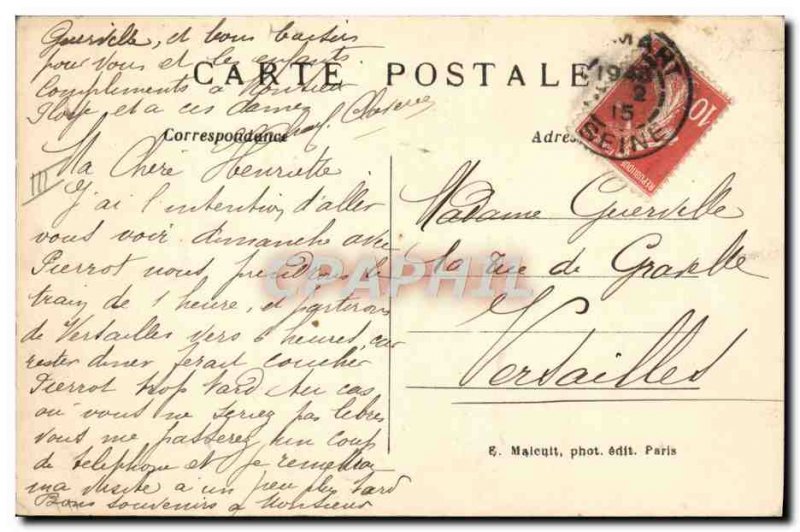 Guerville, et bons baisers
pour vous et les enfants.
Compliments à Monsieur
et a ces dames
CARTE POSTALE
Correspondance
Adres
MART
1940
2
15
SEINE
10
REPUBLIQUE
Ma Chère Henriette
J'ai l'intention d'aller
vous voir dimanche avec
Pierrot nous prendrons le
train de 1 heure, et partirons
de Versailles vers 6 heures, car
rester diner ferait coucher
Pierrot trop tard Au cas
où vous ne seriez pas libres
vous me passerez un coup
de téléphone et je remettrai
ma visite à un peu plus tard
Bons souvenirs à Monsieur
Madame Guerville
rue de Gravelle
Versailles
CPAPHIL
E. Malcuit, phot. édit. Paris